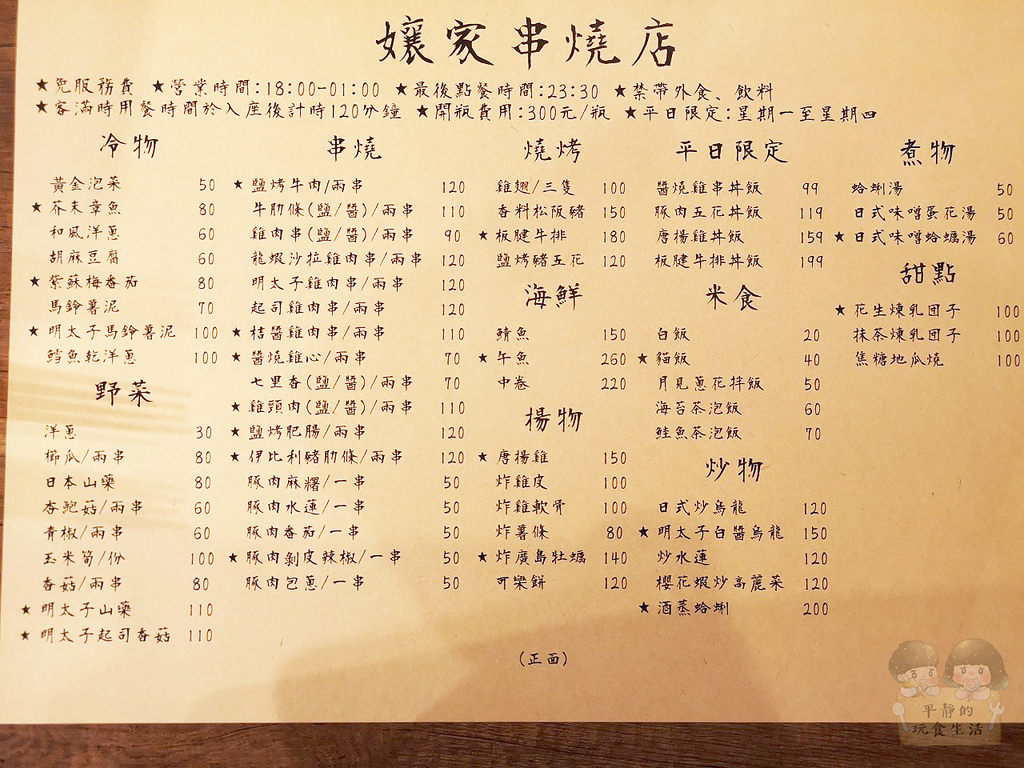 孃家串燒店
★免服務費 ★營業時間:18:00-01:00 ★最後點餐時間:23:30 ★禁帶外食、飲料
★客滿時用餐時間於入座後計時120分鐘 ★開瓶費用:300元/瓶 ★平日限定:星期一至星期四
冷物
黃金泡菜 50
★芥末章魚 80
和風洋蔥 60
胡麻豆腐 60
★紫蘇梅番茄 80
馬鈴薯泥 70
★明太子馬鈴薯泥 100
鱈魚乾洋蔥 100
野菜
洋蔥 30
櫛瓜/兩串 80
日本山藥 80
杏鮑菇/兩串 60
青椒/兩串 60
玉米筍/份 100
香菇/兩串 80
★明太子山藥 110
★明太子起司香菇 110
串燒
★鹽烤牛肉/兩串 120
牛肋條(鹽/醬)/兩串 110
雞肉串(鹽/醬)/兩串 90
龍蝦沙拉雞肉串/兩串 120
明太子雞肉串/兩串 120
起司雞肉串/兩串 120
★桔醬雞肉串/兩串 110
★醬燒雞心/兩串 70
七里香(鹽/醬)/兩串 70
★雞頸肉(鹽/醬)/兩串 110
★鹽烤肥腸/兩串 120
★伊比利豬肋條/兩串 120
豚肉麻糬/一串 50
豚肉水蓮/一串 50
豚肉番茄/一串 50
★豚肉剝皮辣椒/一串 50
豚肉包蔥/一串 50
燒烤
雞翅/三隻 100
香料松阪豬 150
★板腱牛排 180
鹽烤豬五花 120
海鮮
鯖魚 150
★午魚 260
中卷 220
揚物
★唐揚雞 150
炸雞皮 100
炸雞軟骨 100
炸薯條 80
★炸廣島牡蠣 140
可樂餅 120
平日限定
醬燒雞串丼飯 99
豚肉五花丼飯 119
唐揚雞丼飯 159
板腱牛排丼飯 199
米食
白飯 20
★貓飯 40
月見蔥花拌飯 50
海苔茶泡飯 60
鮭魚茶泡飯 70
炒物
日式炒烏龍 120
★明太子白醬烏龍 150
炒水蓮 120
櫻花蝦炒高麗菜 120
★酒蒸蛤蜊 200
煮物
蛤蜊湯 50
日式味噌蛋花湯 50
★日式味噌蛤蠣湯 60
甜點
★花生煉乳団子 100
抹茶煉乳団子 100
焦糖地瓜燒 100
(正面)
平靜的
玩食生活